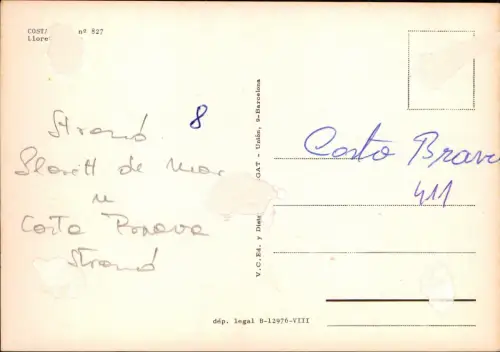 COSTA nº 827
Llore
Strand 8
Lloritt de Mar
u
Costa Brava
Strand
V.C.Ed. y Dist GAT - Unión, 8-Barcelona
Costo Brava
411
dép. legal B-12970-VIII